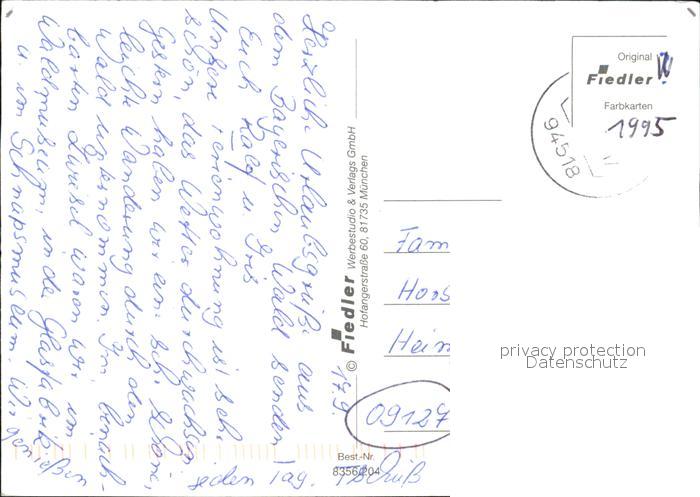 Herzliche Urlaubsgrüße aus
dem Bayerischen Wald senden
Euch Ralf u. Iris
Unsere Ferienwohnung ist sehr
schön, das Wetter durchwachsen
Gestern haben wir eine sehr schöne,
leichte Wanderung durch den
Wald unternommen. Im benach-
barten Zwiesel waren wir im
Waldmuseum, in der Glasfabrik
u. im Schnapsmuseum. Wir genießen
jeden Tag. Tschüß
17.9.
© Fiedler Werbestudio & Verlags GmbH
Hofangerstraße 60, 81735 München
Best.-Nr.
8356/204
Original
Fiedler
Farbkarten
1995
94518
Fam
Hors
Hein
09127
privacy protection
Datenschutz